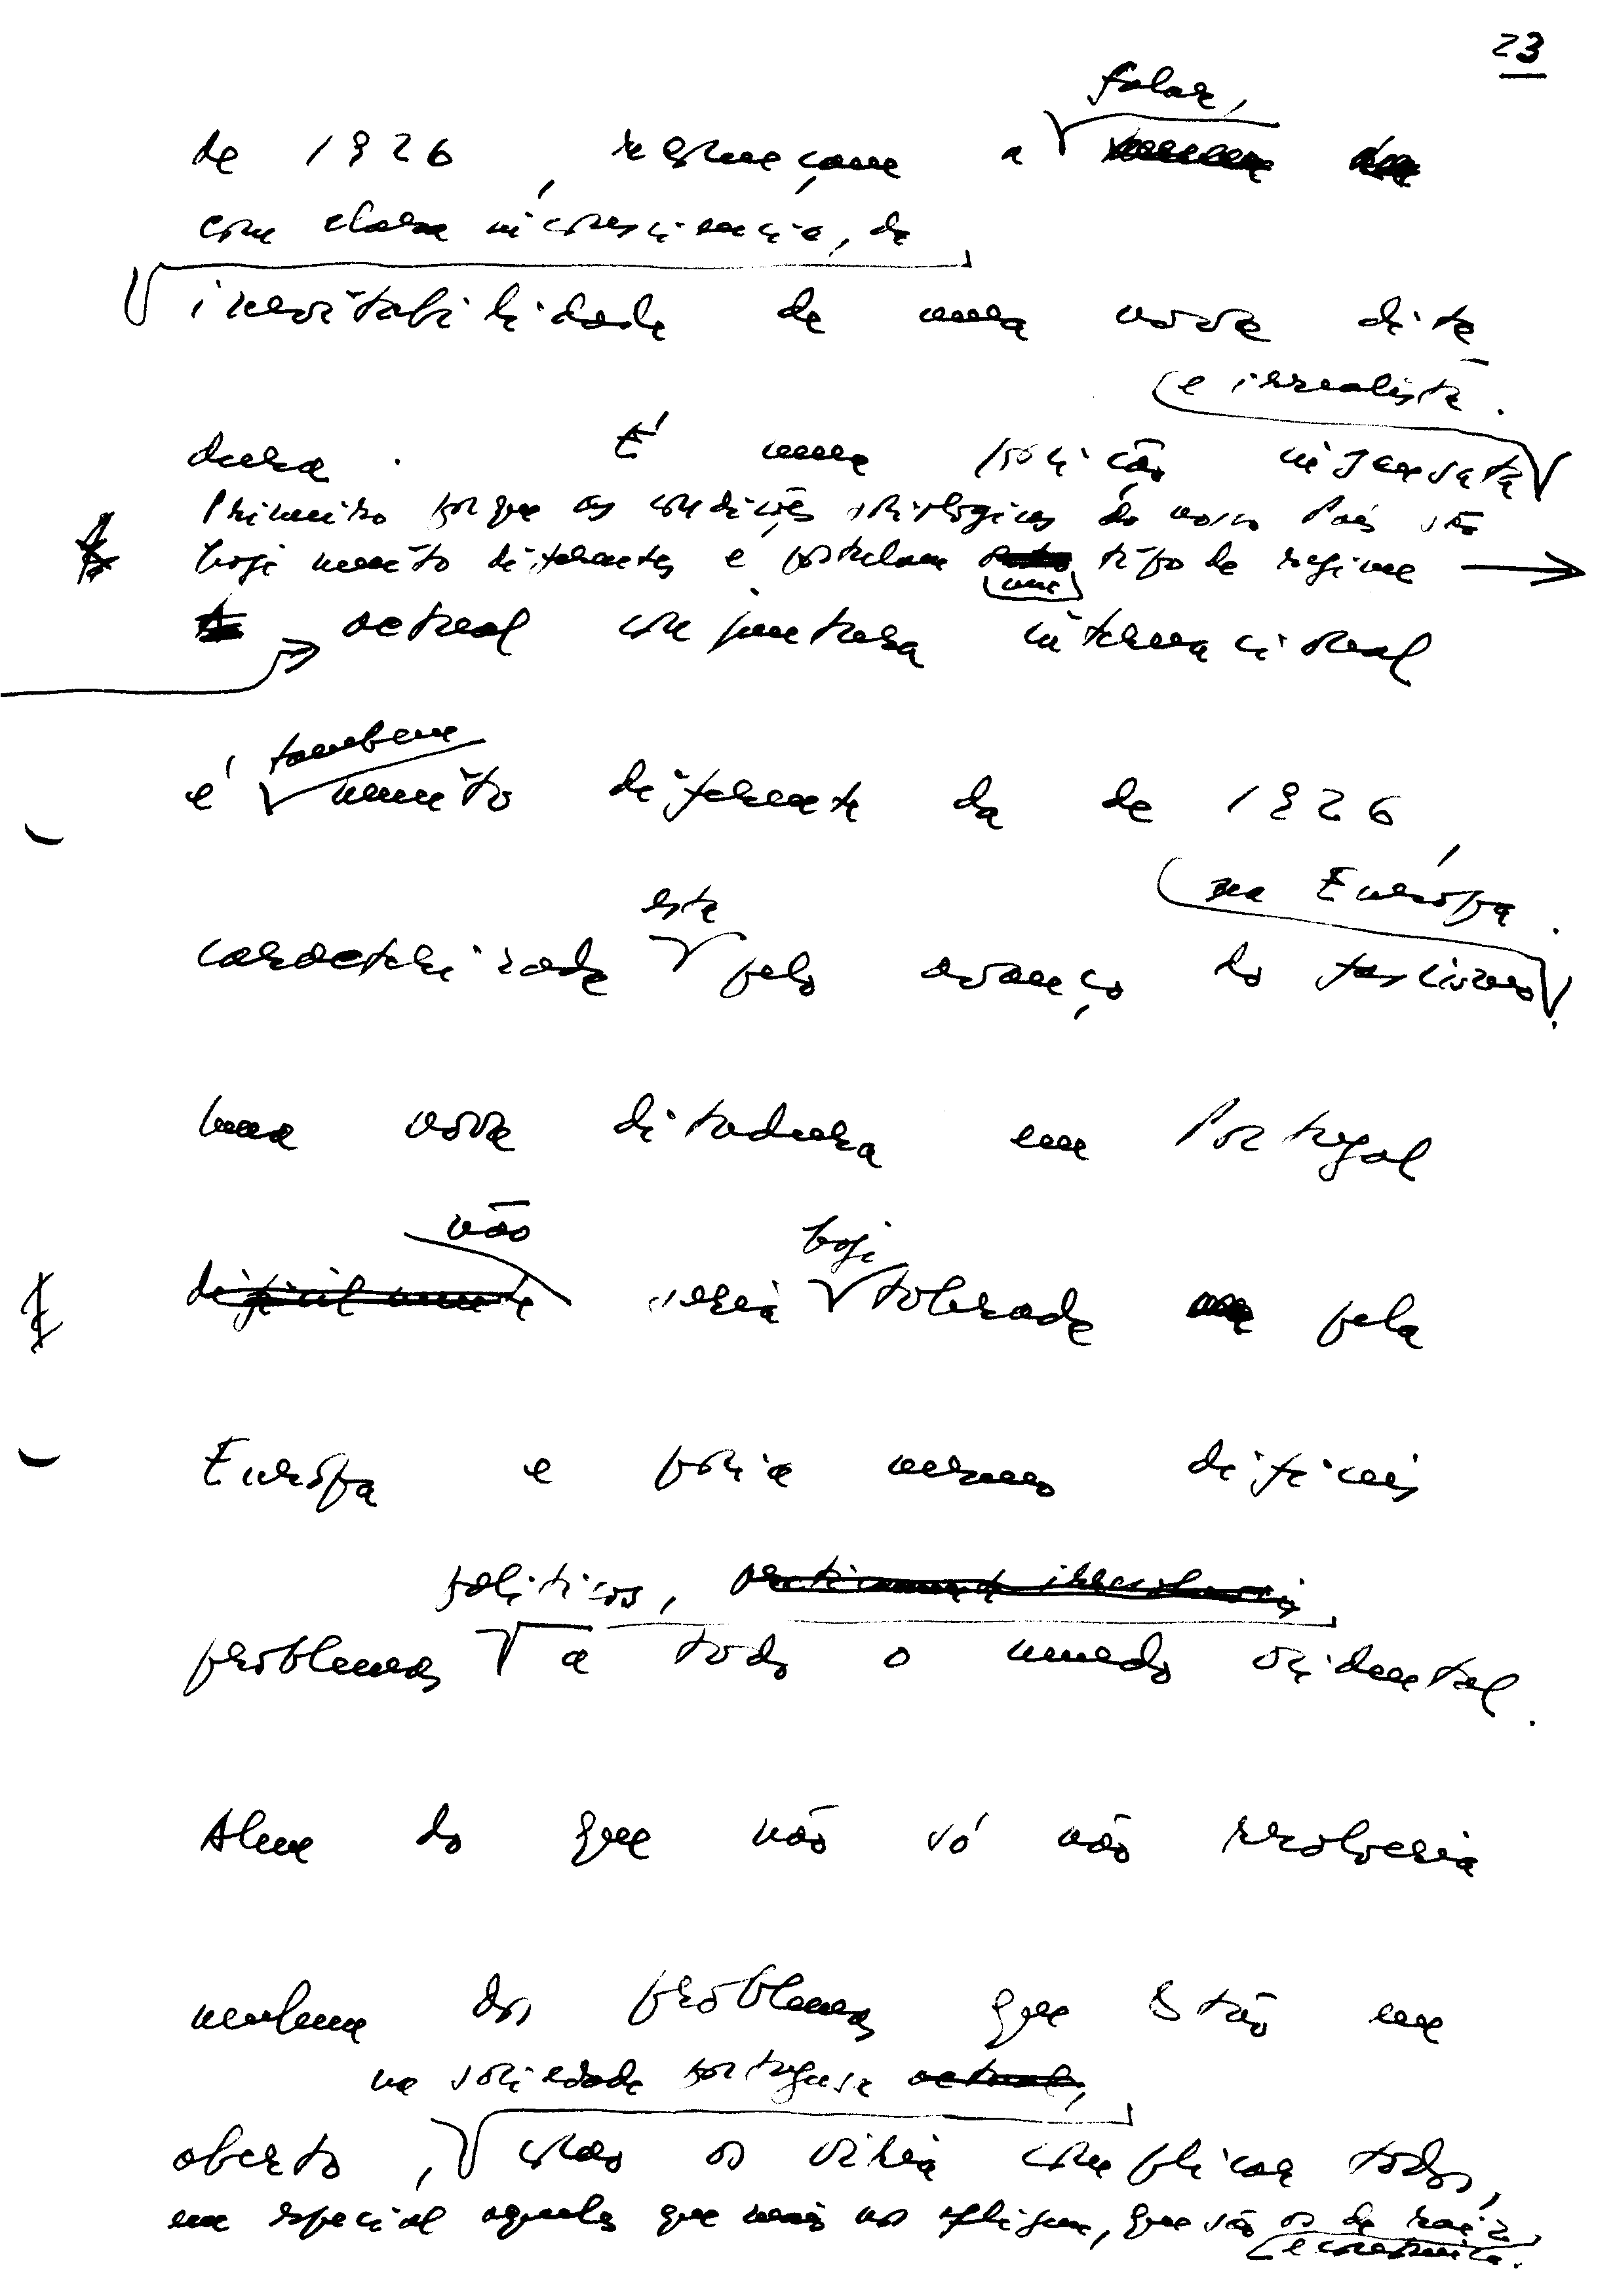 23
falar,
de 1926, recomeçam a
com clara inconsciência, da
inevitabilidade de uma nova dita
e irrealista.
dura. É uma posição insensata
Primeiro porque as condições sociológicas do nosso País são
hoje muito diferentes e postulam tipo de regime
um
actual conjuntura internacional
também
é muito diferente da de 1926,
na Europa.
caracterizada pelo avanço do fascismo.
esta
Uma nova ditadura em Portugal
não hoje
dificilmente seria tolerada pela
Europa e poria menos difíceis
políticos, praticamente irresolúveis
problemas a todo o mundo ocidental.
Além do que não só não resolveria
nenhum dos problemas que estão em
na sociedade portuguesa actual,
aberto, como os viria complicar todos,
em especial aqueles que mais nos afligem, que são os de raiz
económica.